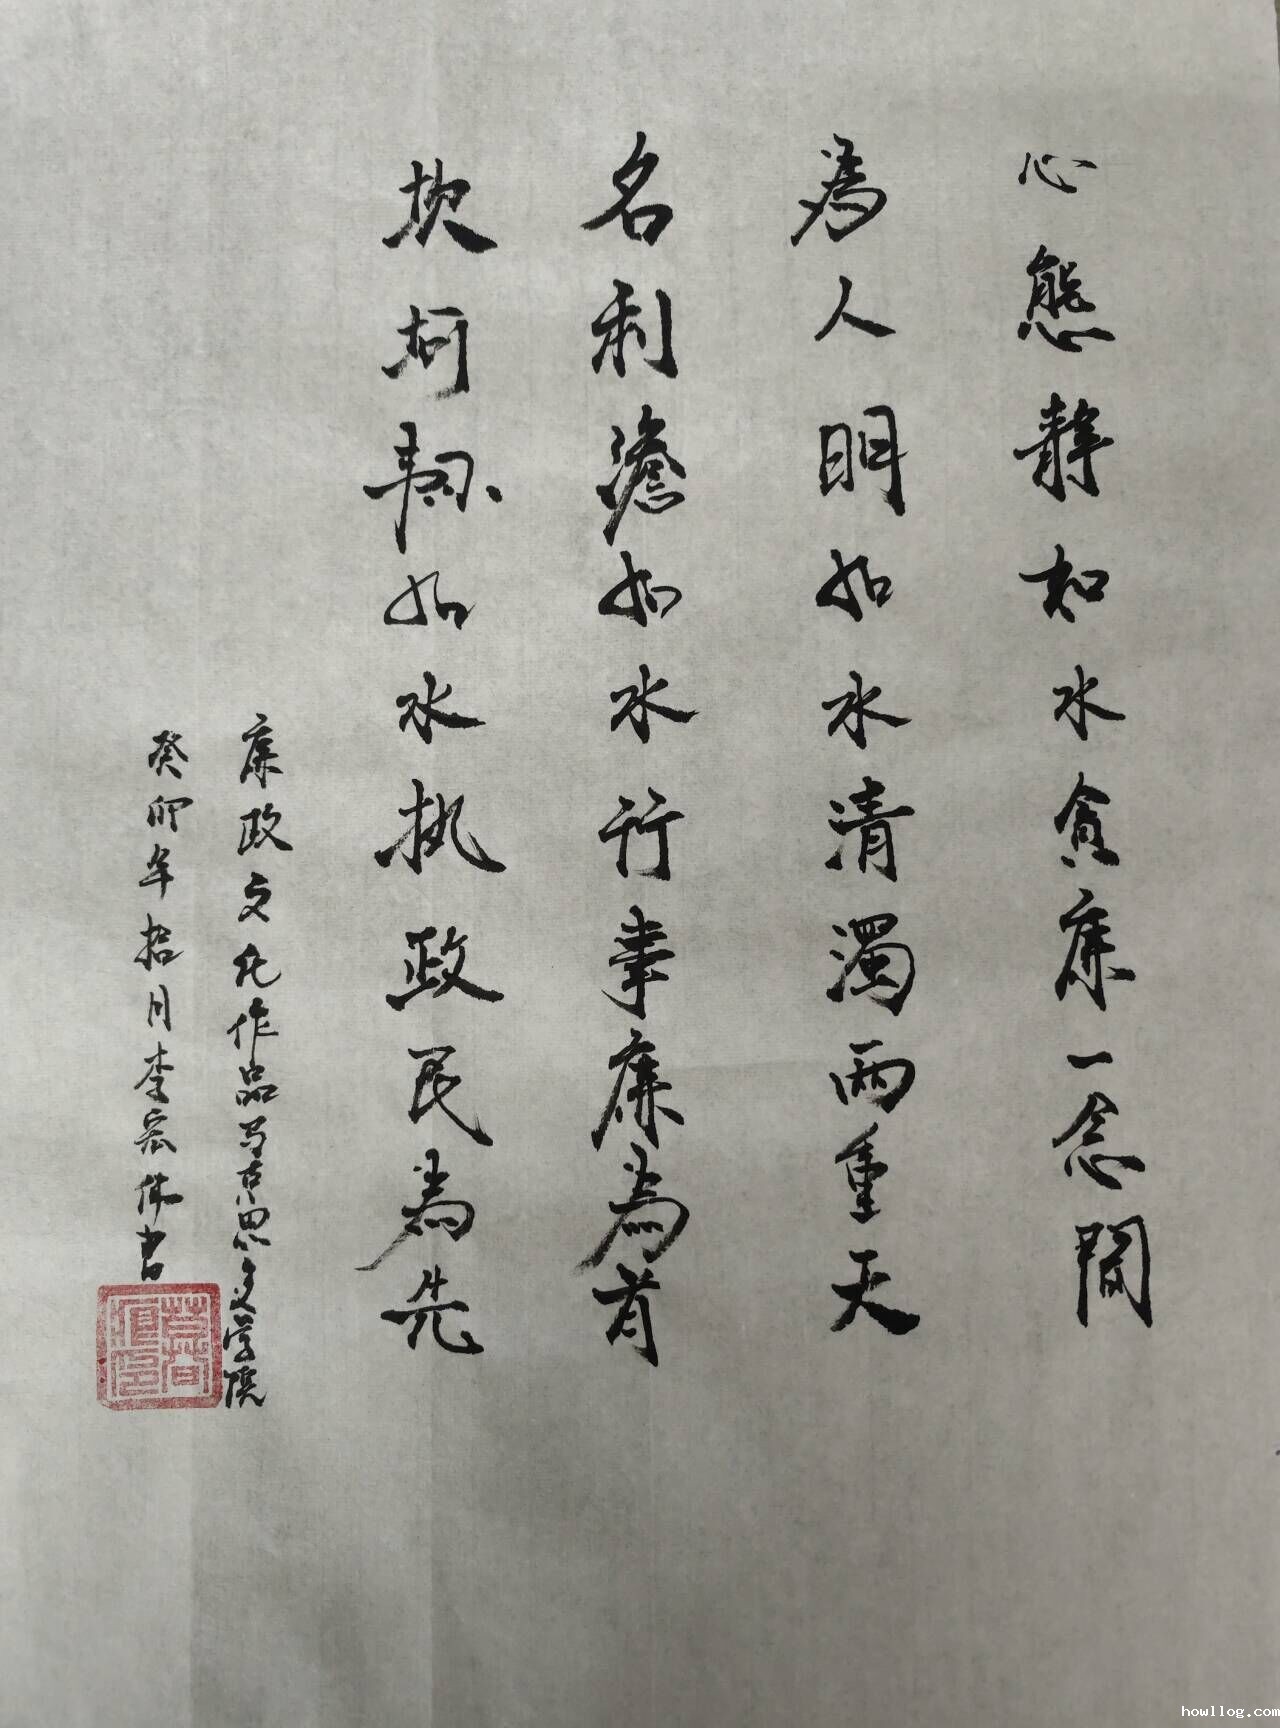 心態静如水貪廉一念間
為人明如水清濁兩重天
名利澹如水行事廉為首
坎坷韌如水执政民為先
廉政文化作品马克思文学院
癸卯年拾月李宏伟書
howllog.com